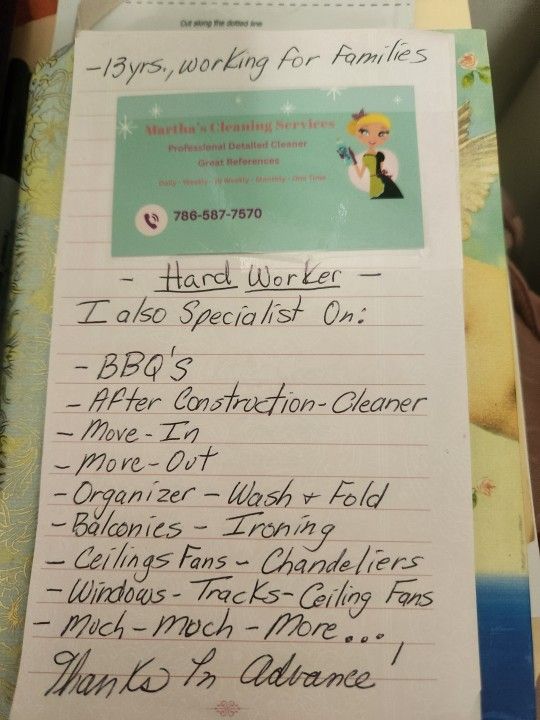 Cut along the dotted line
-13yrs., working for Families
Martha's Cleaning Services
Professional Detailed Cleaner
Great References
Daily - Weekly - Bi Weekly - Monthly - One Time
786-587-7570
- Hard Worker -
I also Specialist On:
- BBQ's
- After Construction-Cleaner
- Move-In
- Move-Out
- Organizer - Wash + Fold
- Balconies - Ironing
- Ceilings Fans - Chandeliers
- Windows - Tracks - Ceiling Fans
- Much - Much - More...,
Thanks In Advance